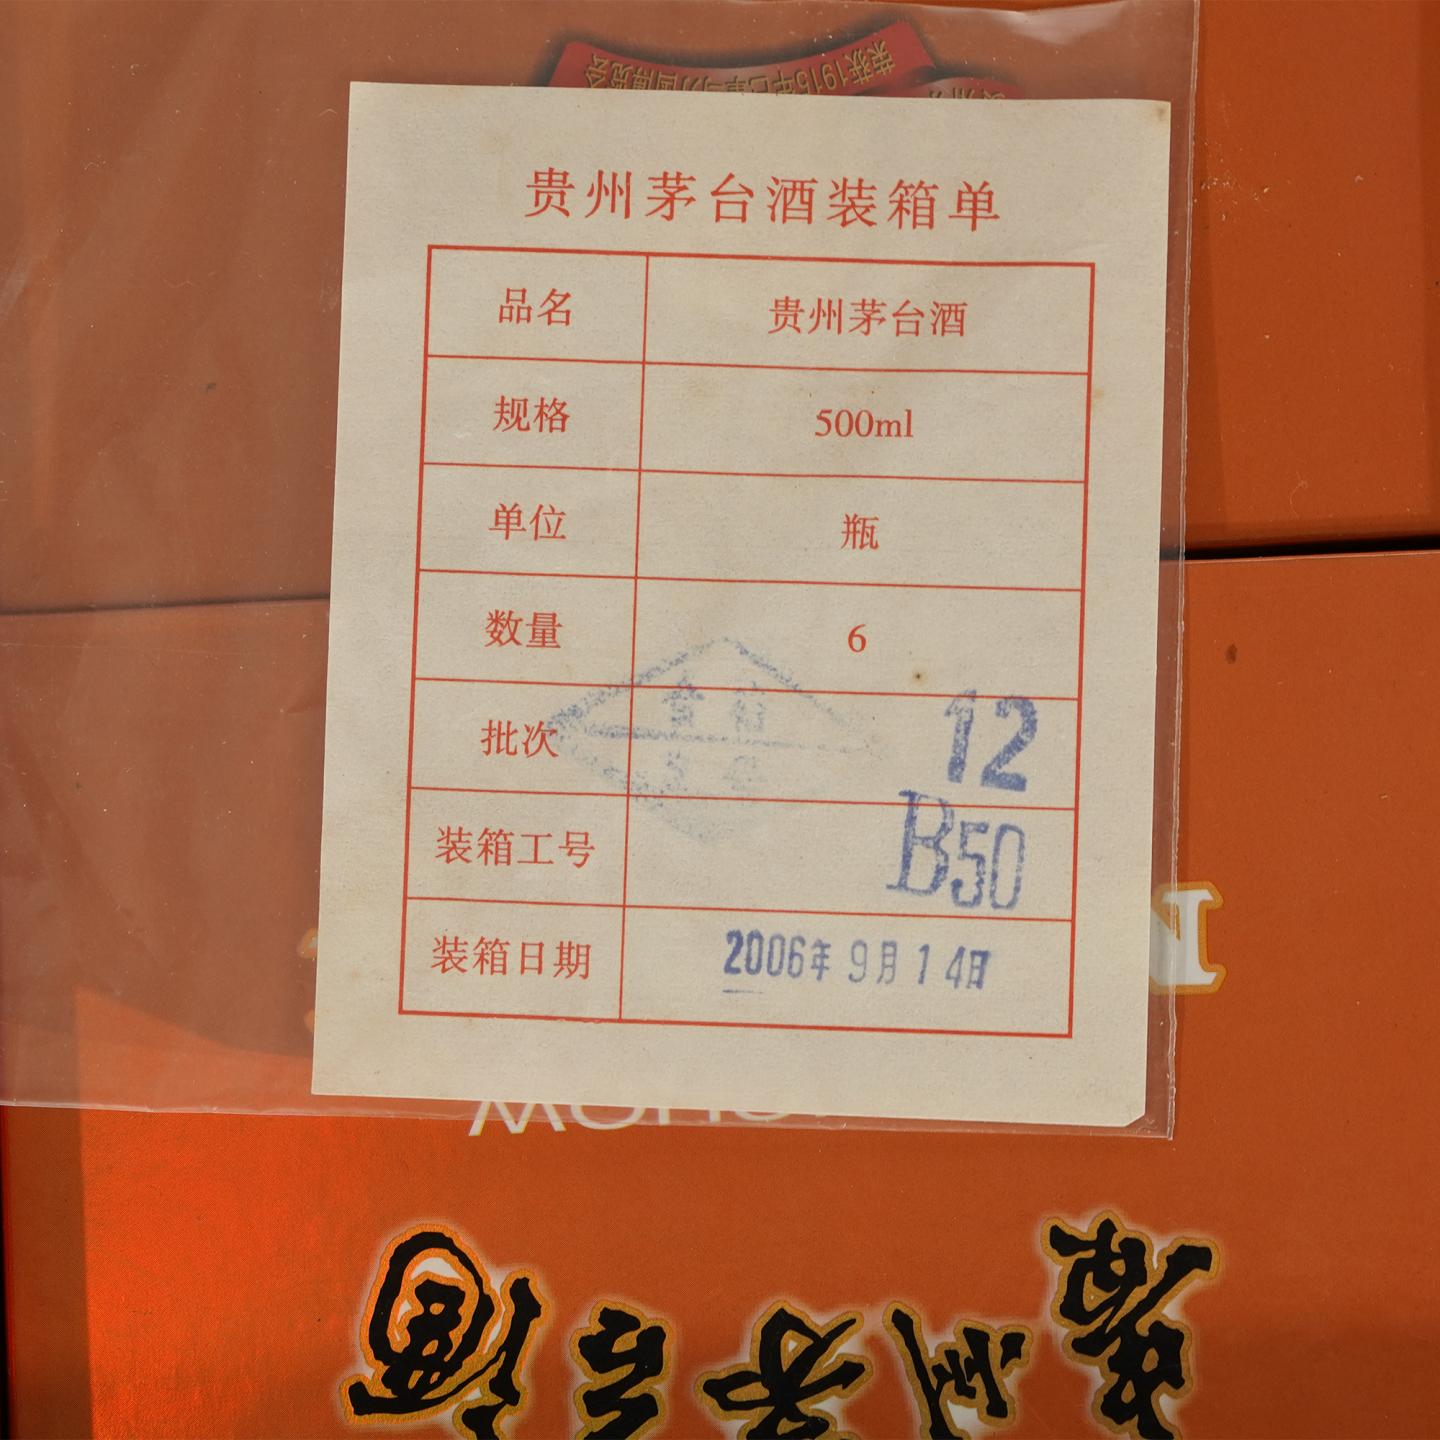 荣获1915年巴拿马万国博览会
贵州茅台酒装箱单
品名 贵州茅台酒
规格 500ml
单位 瓶
数量 6
批次 12
装箱工号 B50
装箱日期 2006年9月14日
贵州茅台酒